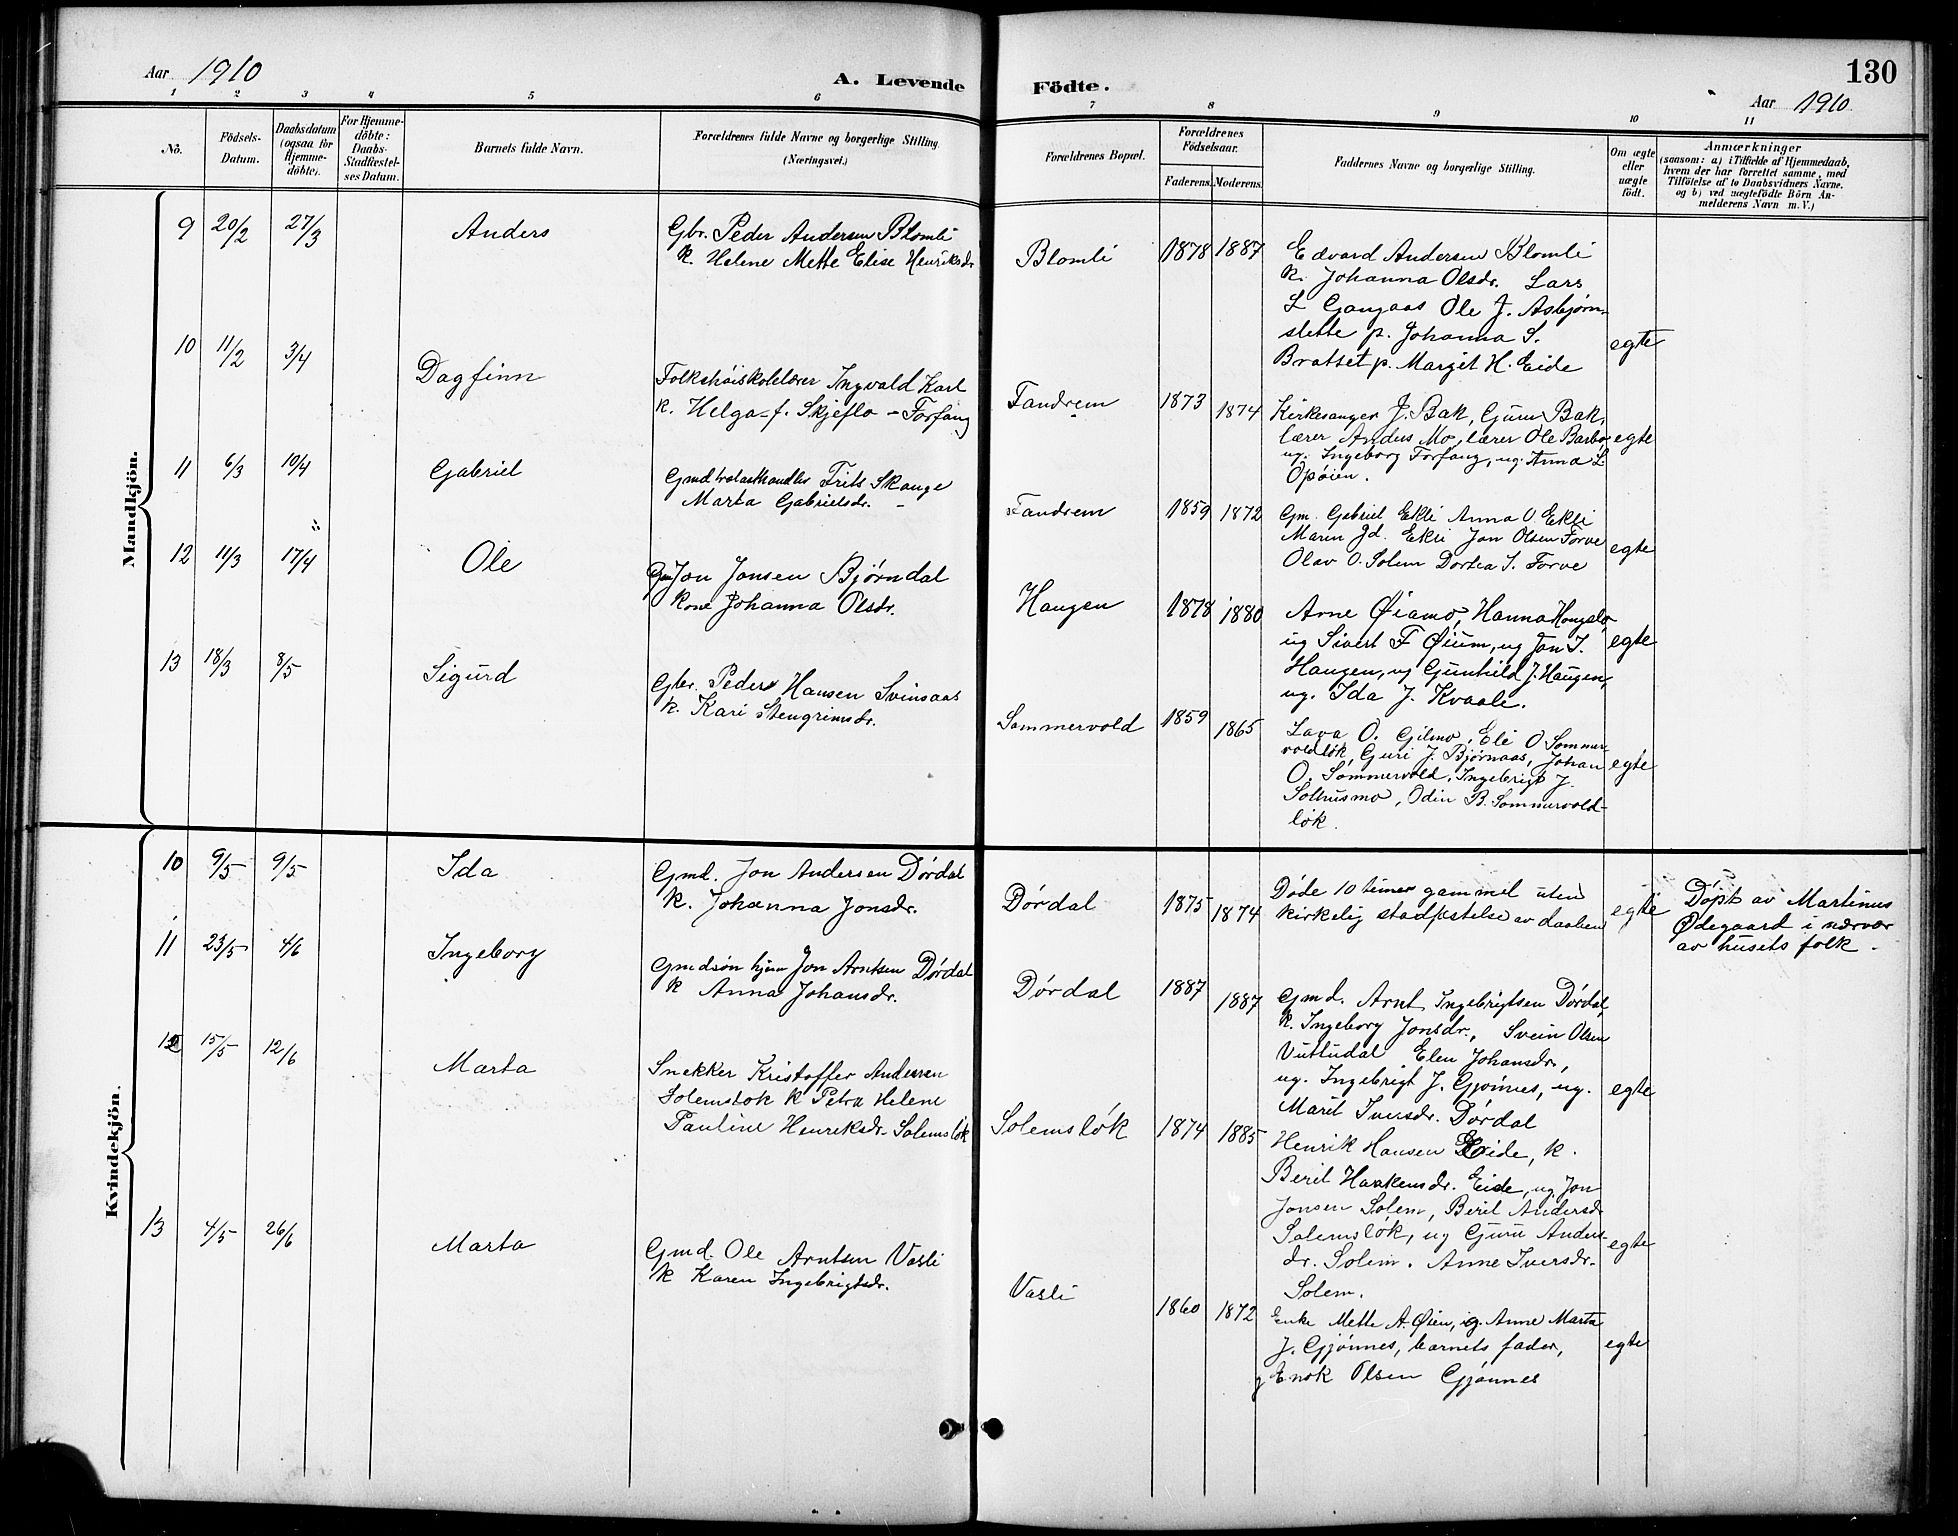 Aar 1910
A. Levende
Födte.
130
Aar 1910
1 2 3 4 5 6 7 8 9 10 11
No.
Födsels-
Datum.
Daabsdatum
(ogsaa for
Hjemme-
döbte).
For Hjemme-
döbte:
Daabs-
Stadfæstel-
ses Datum.
Barnets fulde Navn.
Forældrenes fulde Navne og borgerlige Stilling.
(Næringsvei.)
Forældrenes Bopæl.
Forældrenes
Födselsaar.
Faderens. Moderens.
Faddernes Navne og borgerlige Stilling.
Om ægte
eller
uægte
födt.
Anmærkninger
(saasom: a) i Tilfælde af Hjemmedaab,
hvem der har forrettet samme, med
Tilföielse af to Daabsvidners Navne.
og b) ved uægtefödte Börn An-
melderens Navn m. V.)
Mandkjön.
9 20/2 27/3 Anders
Gbr. Peder Andersen Blomli
k. Helene Mette Elise Henriksdr
Blomli 1878 1887
Edvard Andersen Blomli
k. Johanna Olsdr. Lars
L Gangaas Ole J. Asbjørn-
slette p. Johanna S.
Bratset p. Margit H. Eide
egte
10 11/2 3/4 Dagfinn
Folkehøiskolelærer Ingvald Karl
k. Helga f. Skjeflo - Forfang
Fandrem 1873 1874
Kirkesanger J. Bak, Guru Bak,
lærer Anders Mo, lærer Ole Barbo,
ug. Ingeborg Forfang, ug. Anna L
Opøien.
egte
11 6/3 10/4 Gabriel
Gmd Frits Skauge
Marta Gabrielsdr. -
Fandrem 1859 1872
Gm. Gabriel Ekli Anna O Ekli
Marin Jd. Ekli Jon Olsen Forve
Olav O. Solem Dortea S. Forve
egte
12 11/3 17/4 Ole
Gm Jon Jonsen Bjørndal
kone Johanna Olsdr.
Haugen 1878 1880
Arne Øiamo, Hanna Hongslo,
ug Sivert F Øium, ug Jon J.
Haugen, ug Gunhild J. Haugen,
ug. Ida J. Kvaale.
egte
13 18/3 8/5 Sigurd
Gbr. Peder Hansen Svinsaas
k. Kari Stengrimsdr.
Sommervold 1859 1865
Lava O. Gilmo, Eli O Sommer-
voldløk, Guri J. Bjørnaas, Johan
O. Sommervold, Ingebrigt J.
Solhusmo, Odin B. Sommervold-
løk.
egte
Kvindekjön.
10 9/5 9/5 Ida
Gmd. Jon Andersen Dørdal
k. Johanna Jonsdr.
Dørdal 1875 1874
Døde 10 timer gammel uten
kirkelig stadfestelse av daaben
egte
Døpt av Martinus
Ødegaard i nærvær
av husets folk.
11 23/5 4/6 Ingeborg
Gmdsøn hjem Jon Arntsen Dørdal
k Anna Johansdr.
Dørdal 1887 1887
Gmd. Arnt Ingebrigtsen Dørdal,
k. Ingeborg Jonsdr., Svein Olsen
Vuttudal Elen Johansdr,
ug. Ingebrigt J. Gjønnes, ug.
Marit Iversdr. Dørdal
egte
12 15/5 12/6 Marta
Snekker Kristoffer Andersen
Solemsløk k Petra Helene
Pauline Henriksdr. Solemsløk
Solemsløk 1874 1885
Henrik Hansen Eide, k.
Beril Haakensdr. Eide, ug Jon
Jonsen Solem, Beril Andersdr
Solemsløk, ug Guru Anders-
dr. Solem. Anne Iversdr.
Solem.
egte
13 4/5 26/6 Marta
Gmd. Ole Arntsen Vasli
k Karen Ingebrigtsdr.
Vasli 1860 1872
Enke Mette A. Øien, ug. Anne Marta
J. Gjønnes, barnets fader,
g Enok Olsen Gjønnes
egte